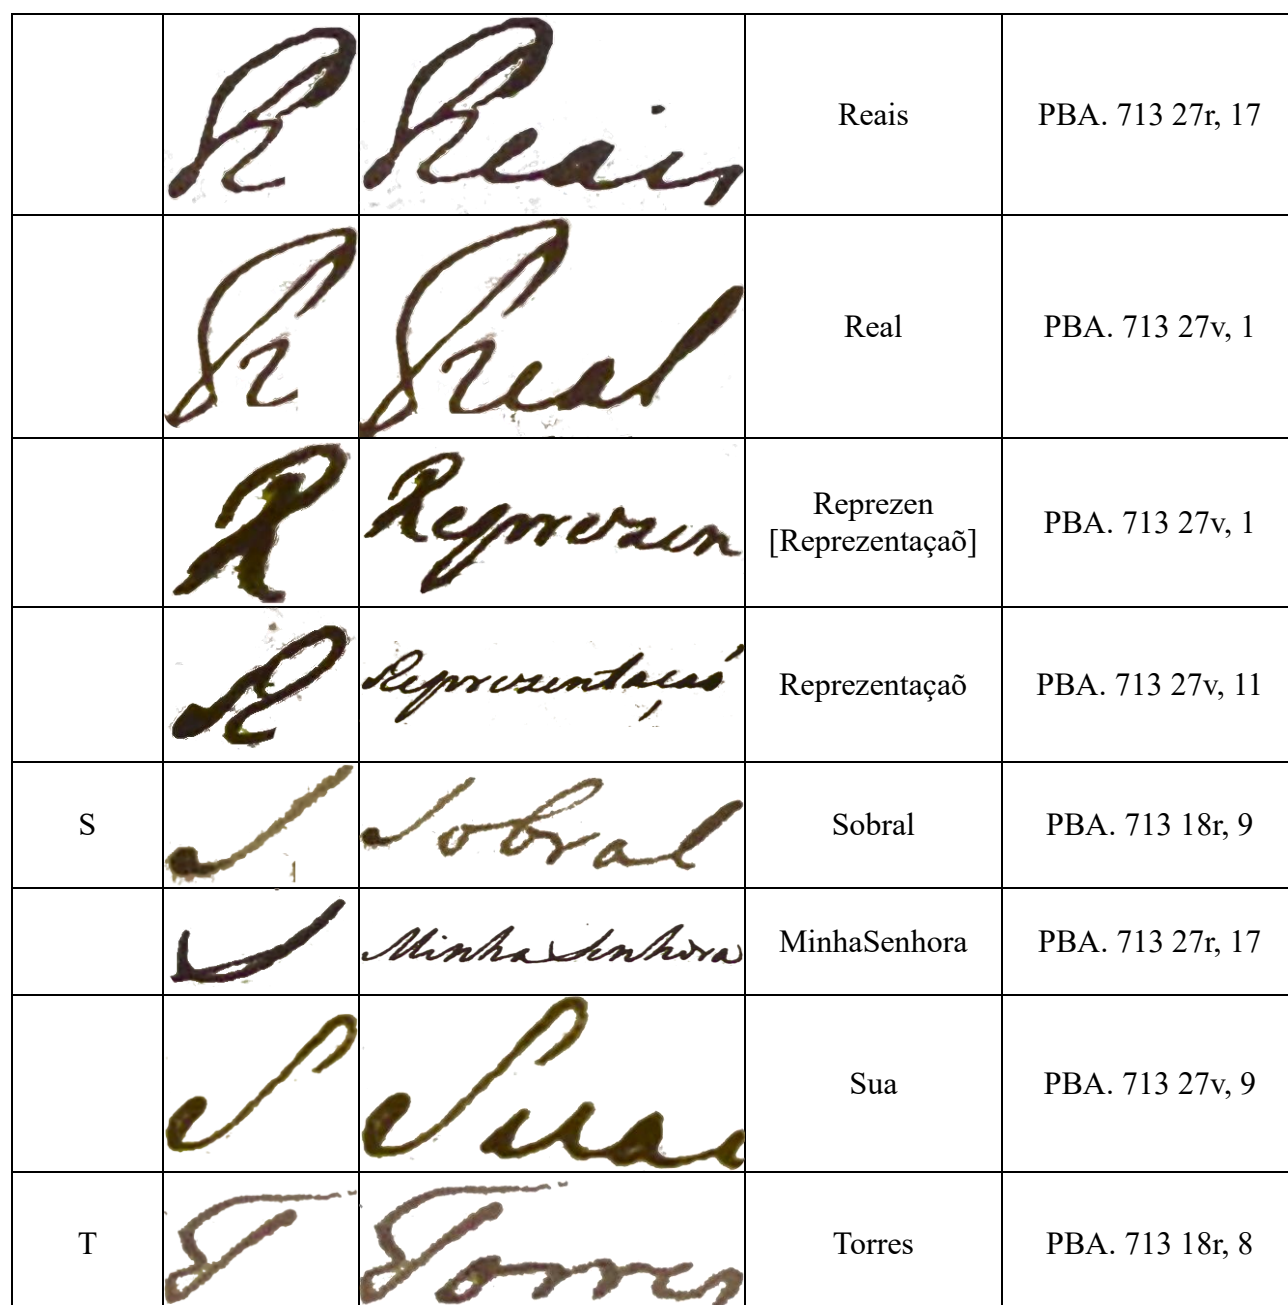 R Reais Reais PBA. 713 27r, 17
R Real Real PBA. 713 27v, 1
R Reprezen Reprezen [Reprezentaçaõ] PBA. 713 27v, 1
R Reprezentaçaõ Reprezentaçaõ PBA. 713 27v, 11
S S Sobral Sobral PBA. 713 18r, 9
S Minha Senhora MinhaSenhora PBA. 713 27r, 17
S Sua Sua PBA. 713 27v, 9
T T Torres Torres PBA. 713 18r, 8